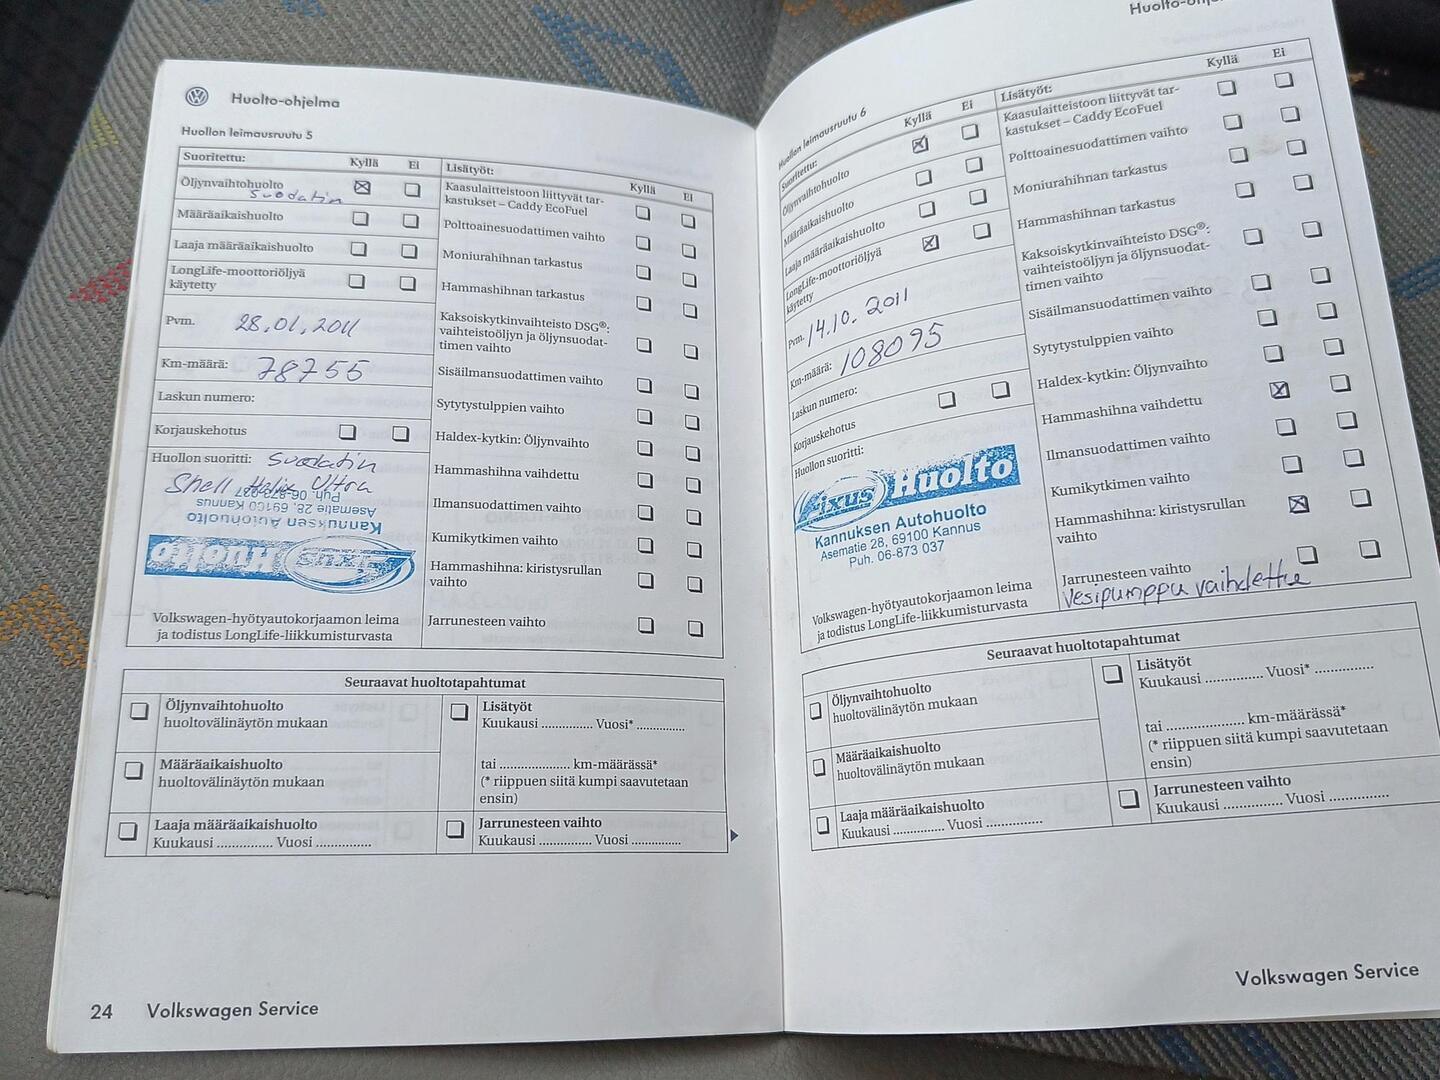 Huolto-ohjelma
Huollon leimausruutu 5
Suoritettu: Kyllä Ei
Öljynvaihtohuolto
suodatin
Määräaikaishuolto
Laaja määräaikaishuolto
LongLife-moottoriöljyä
käytetty
Pvm. 28.01.2011
Km-määrä: 78755
Laskun numero:
Korjauskehotus
Huollon suoritti: Suodatin
Shell Helix Ultra
Fixus Huolto
Kannuksen Autohuolto
Asematie 28, 69100 Kannus
Puh. 06-873 037
Volkswagen-hyötyautokorjaamon leima
ja todistus LongLife-liikkumisturvasta
Lisätyöt: Kyllä Ei
Kaasulaitteistoon liittyvät tar-
kastukset – Caddy EcoFuel
Polttoainesuodattimen vaihto
Moniurahihnan tarkastus
Hammashihnan tarkastus
Kaksoiskytkinvaihteisto DSG®:
vaihteistoöljyn ja öljynsuodat-
timen vaihto
Sisäilmansuodattimen vaihto
Sytytystulppien vaihto
Haldex-kytkin: Öljynvaihto
Hammashihna vaihdettu
Ilmansuodattimen vaihto
Kumikytkimen vaihto
Hammashihna: kiristysrullan
vaihto
Jarrunesteen vaihto
Seuraavat huoltotapahtumat
Öljynvaihtohuolto
huoltovälinäytön mukaan
Määräaikaishuolto
huoltovälinäytön mukaan
Laaja määräaikaishuolto
Kuukausi .............. Vuosi ..............
Lisätyöt
Kuukausi ............. Vuosi* ............
tai .................. km-määrässä*
(* riippuen siitä kumpi saavutetaan
ensin)
Jarrunesteen vaihto
Kuukausi .............. Vuosi .............
24 Volkswagen Service
Huollon leimausruutu 6
Suoritettu: Kyllä Ei
Öljynvaihtohuolto
Määräaikaishuolto
Laaja määräaikaishuolto
LongLife-moottoriöljyä
käytetty
Pvm. 14.10.2011
Km-määrä: 108095
Laskun numero:
Korjauskehotus
Huollon suoritti:
Fixus Huolto
Kannuksen Autohuolto
Asematie 28, 69100 Kannus
Puh. 06-873 037
Volkswagen-hyötyautokorjaamon leima
ja todistus LongLife-liikkumisturvasta
Lisätyöt: Kyllä Ei
Kaasulaitteistoon liittyvät tar-
kastukset – Caddy EcoFuel
Polttoainesuodattimen vaihto
Moniurahihnan tarkastus
Hammashihnan tarkastus
Kaksoiskytkinvaihteisto DSG®:
vaihteistoöljyn ja öljynsuodat-
timen vaihto
Sisäilmansuodattimen vaihto
Sytytystulppien vaihto
Haldex-kytkin: Öljynvaihto
Hammashihna vaihdettu
Ilmansuodattimen vaihto
Kumikytkimen vaihto
Hammashihna: kiristysrullan
vaihto
Jarrunesteen vaihto
Vesipumppu vaihdettu
Seuraavat huoltotapahtumat
Öljynvaihtohuolto
huoltovälinäytön mukaan
Määräaikaishuolto
huoltovälinäytön mukaan
Laaja määräaikaishuolto
Kuukausi ............. Vuosi ..............
Lisätyöt
Kuukausi ............... Vuosi* ...............
tai .................... km-määrässä*
(* riippuen siitä kumpi saavutetaan
ensin)
Jarrunesteen vaihto
Kuukausi ............... Vuosi ...............
Volkswagen Service